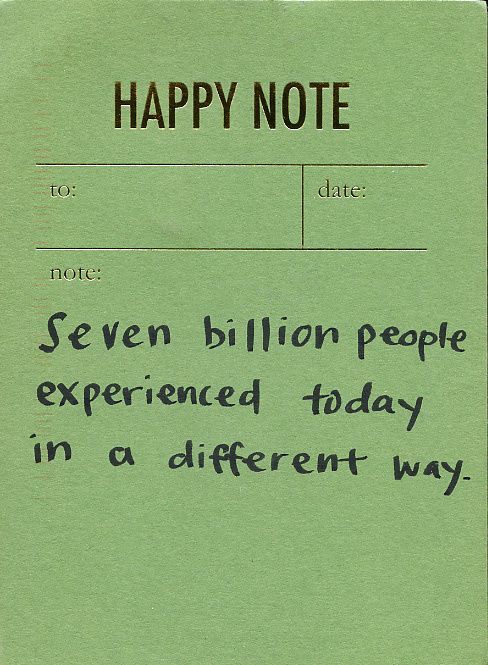 HAPPY NOTE
to:
date:
note:
Seven billion people
experienced today
in a different way.